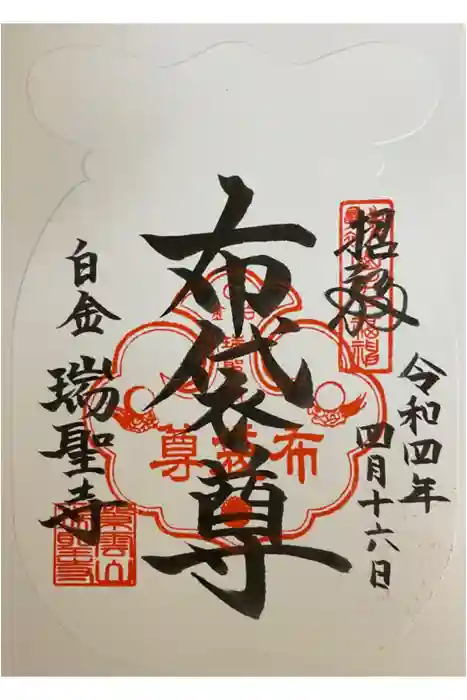 招福
令和四年
四月十六日
布袋尊
布袋尊
白金
瑞聖寺
紫雲山
瑞聖寺